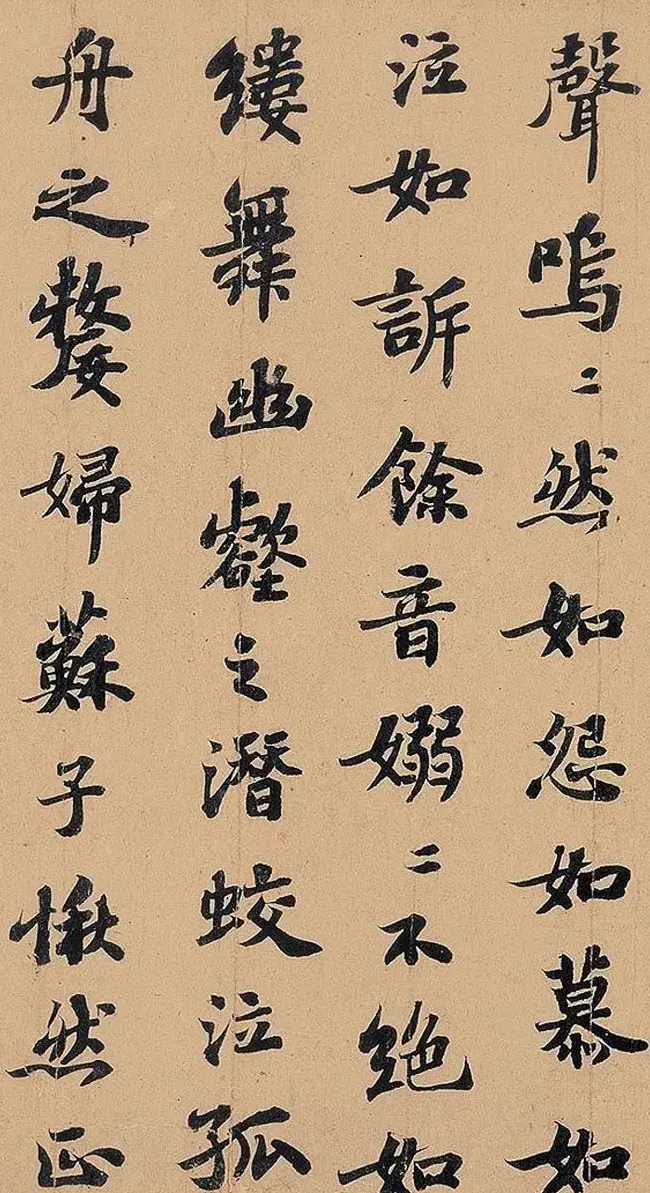 聲嗚二然如怨如慕如
泣如訴餘音嫋二不絶如
縷舞幽壑之潛蛟泣孤
舟之嫠婦蘇子愀然正